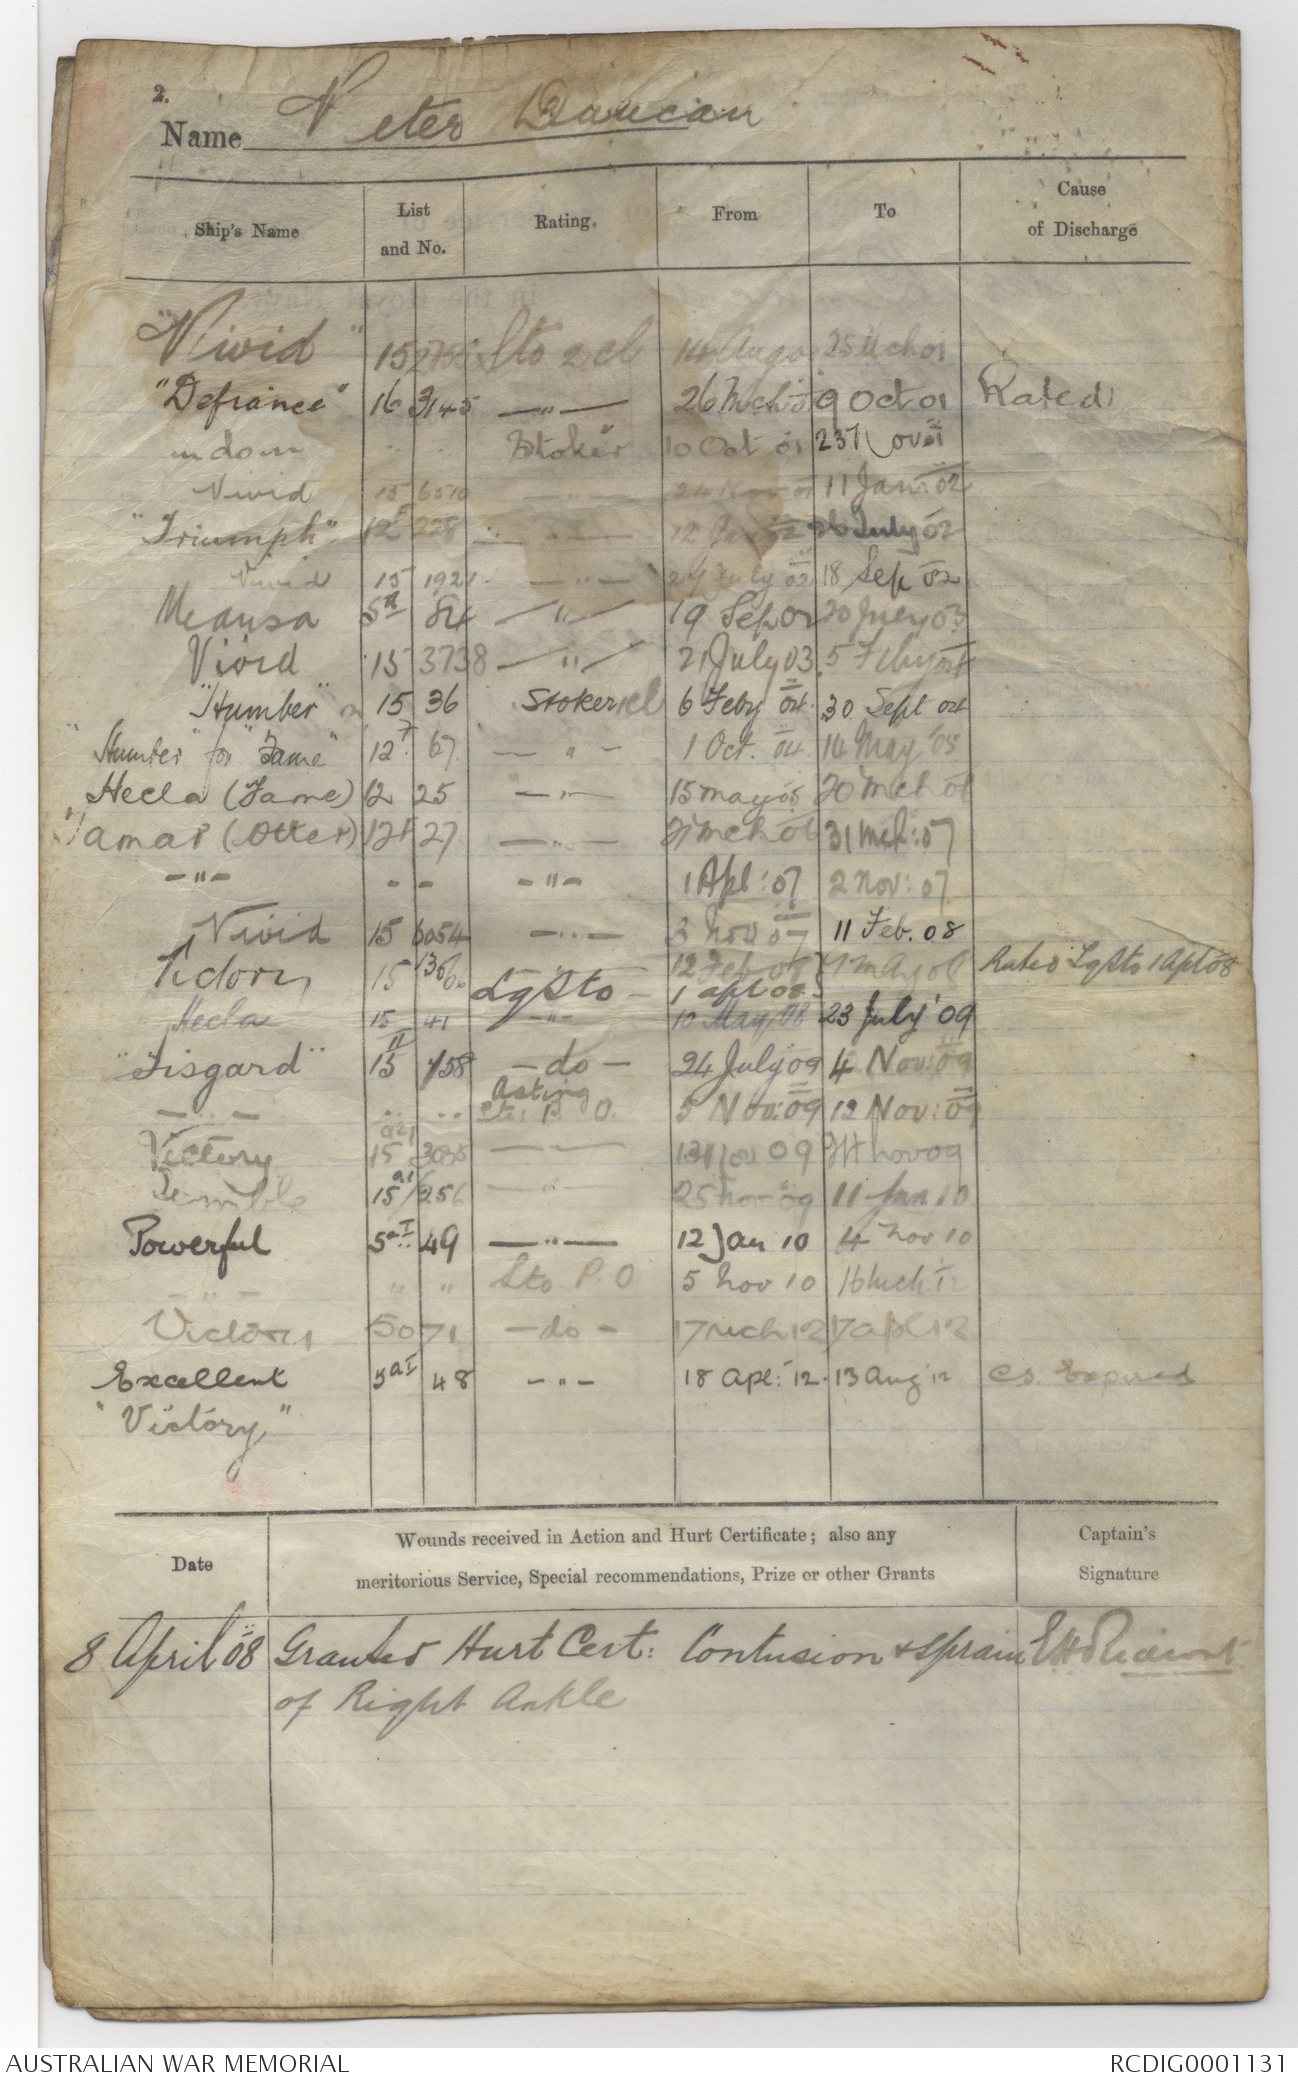 2.
Name Peter Duncan
Ship's Name List and No. Rating From To Cause of Discharge
"Vivid" 15 Sto 2 cl 14 Aug 25 Mch 01
"Defiance" 16 3145 — " — 26 Mch 01 9 Oct 01 Rated
" " Stoker 10 Oct 01 23 Nov 01
Vivid 15 6510 — " — 24 Nov 01 11 Jan 02
"Triumph" 12 228 — " — 12 Jan 02 26 July 02
Vivid 15 1921 — " — 27 July 02 18 Sep 02
Medusa 5a 84 — " — 19 Sep 02 20 July 03
Vivid 15 3738 — " — 21 July 03 5 Feby 04
"Humber" 15 36 Stoker 1 cl 6 Feby 04 30 Sept 04
"Humber" for "Fame" 12 67 — " — 1 Oct. 04 14 May 05
Hecla (Fame) 12 25 — " — 15 May 05 20 Mch 06
Tamar (Otter) 12 27 — " — 21 Mch 06 31 Mch: 07
— " — - - — " — 1 Apl: 07 2 Nov: 07
Vivid 15 6054 — " — 3 Nov 07 11 Feb. 08
Victory 15 12 Feb 08 May 08 Rated Lg Sto 1 Apl 08
Lg Sto — 1 Apl 08
Hecla 15 41 — " — 10 May 08 23 July 09
"Fisgard" 15 II 158 — do — 24 July 09 4 Nov: 09
Acting
— " — " " Sto: P. O. 5 Nov: 09 12 Nov: 09
Victory 15 — " — 13 Nov 09 24 Nov 09
Terrible 15 256 — " — 25 Nov 09 11 Jan 10
Powerful 5aI 49 — " — 12 Jan 10 4 Nov 10
— " — " " Sto P. O 5 Nov 10 16 Mch 12
Victory 50 71 — do — 17 Mch 12 17 Apl 12
Excellent 5aI 48 — " — 18 Apl: 12 13 Aug 12 C.S. Expired
"Victory"
Date Wounds received in Action and Hurt Certificate; also any Captain's
meritorious Service, Special recommendations, Prize or other Grants Signature
8 April 08 Granted Hurt Cert: Contusion & sprain
of Right Ankle
AUSTRALIAN WAR MEMORIAL RCDIG0001131